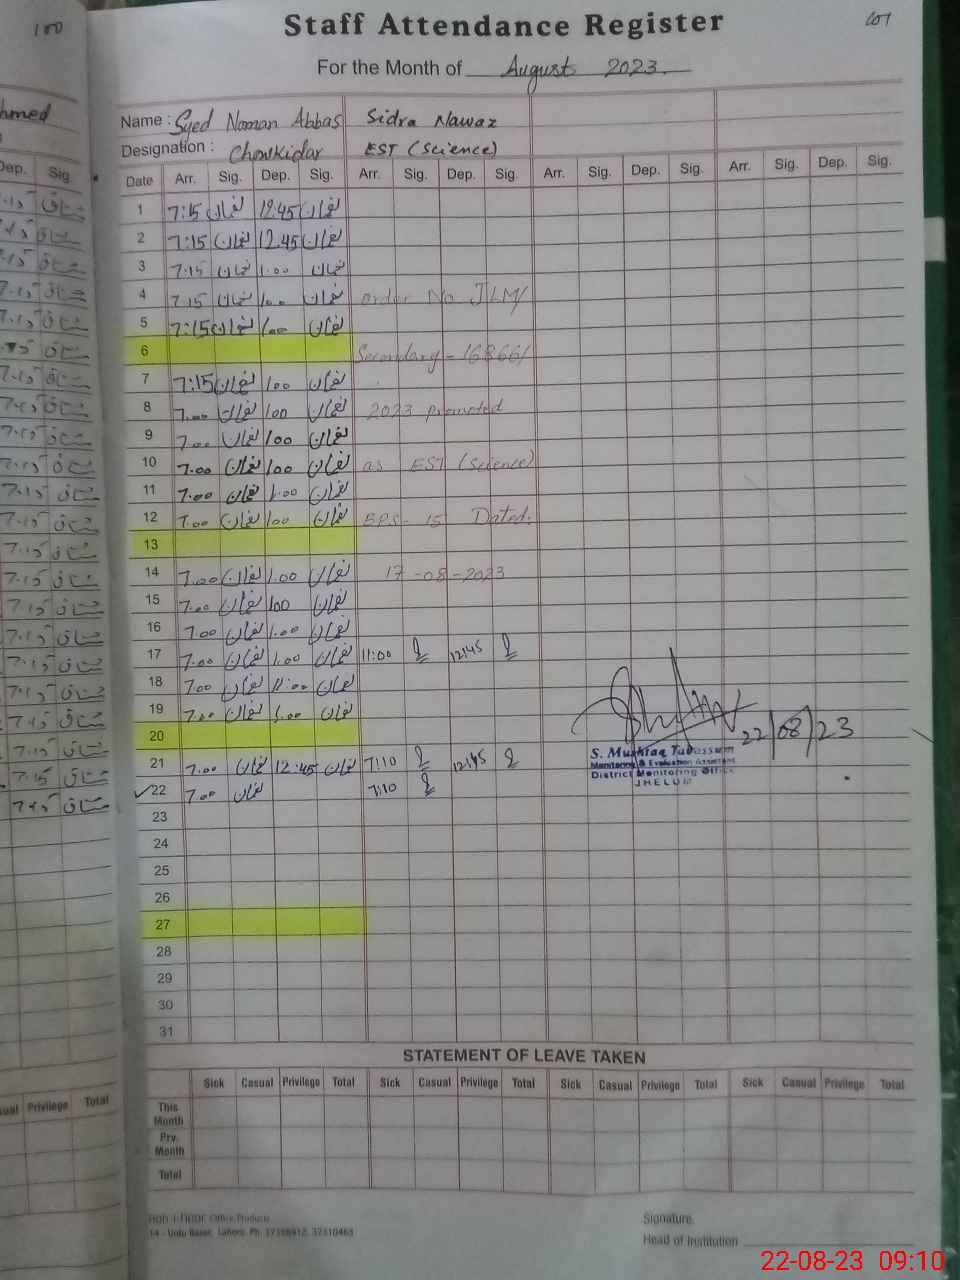 100
Staff Attendance Register
101
For the Month of August 2023
Name : Syed Noman Abbas Sidra Nawaz
Designation : Chowkidar EST (Science)
Date Arr. Sig. Dep. Sig. Arr. Sig. Dep. Sig. Arr. Sig. Dep. Sig. Arr. Sig. Dep. Sig.
1 7:15 نعمان 12.45 نعمان
2 7:15 نعمان 12.45 نعمان
3 7.15 نعمان 1.00 نعمان
4 7.15 نعمان 1.00 نعمان order No JLM/
5 7:15 نعمان 1.00 نعمان
6 Secondary - 16866/
7 7:15 نعمان 1.00 نعمان
8 7.00 نعمان 1.00 نعمان 2023 promoted
9 7.00 نعمان 1.00 نعمان
10 7.00 نعمان 1.00 نعمان as EST (Science)
11 7.00 نعمان 1.00 نعمان
12 7.00 نعمان 1.00 نعمان BPS - 15 Dated.
13
14 7.00 نعمان 1.00 نعمان 17-08-2023
15 7.00 نعمان 1.00 نعمان
16 7.00 نعمان 1.00 نعمان
17 7.00 نعمان 1.00 نعمان 11:00 12:45
18 7.00 نعمان نعمان
19 7.00 نعمان 1.00 نعمان
20
22/08/23
21 7.00 نعمان 12:45 نعمان 7:10 12:45
S. Mushtaq Tabassum
Monitoring & Evaluation Assistant
District Monitoring Office
JHELUM
22 7.00 نعمان 7:10
23
24
25
26
27
28
29
30
31
STATEMENT OF LEAVE TAKEN
Sick Casual Privilege Total Sick Casual Privilege Total Sick Casual Privilege Total Sick Casual Privilege Total
This Month
Prv. Month
Total
Office Products
14 - Urdu Bazar, Lahore. Ph.
Signature.
Head of Institution
22-08-23 09:10